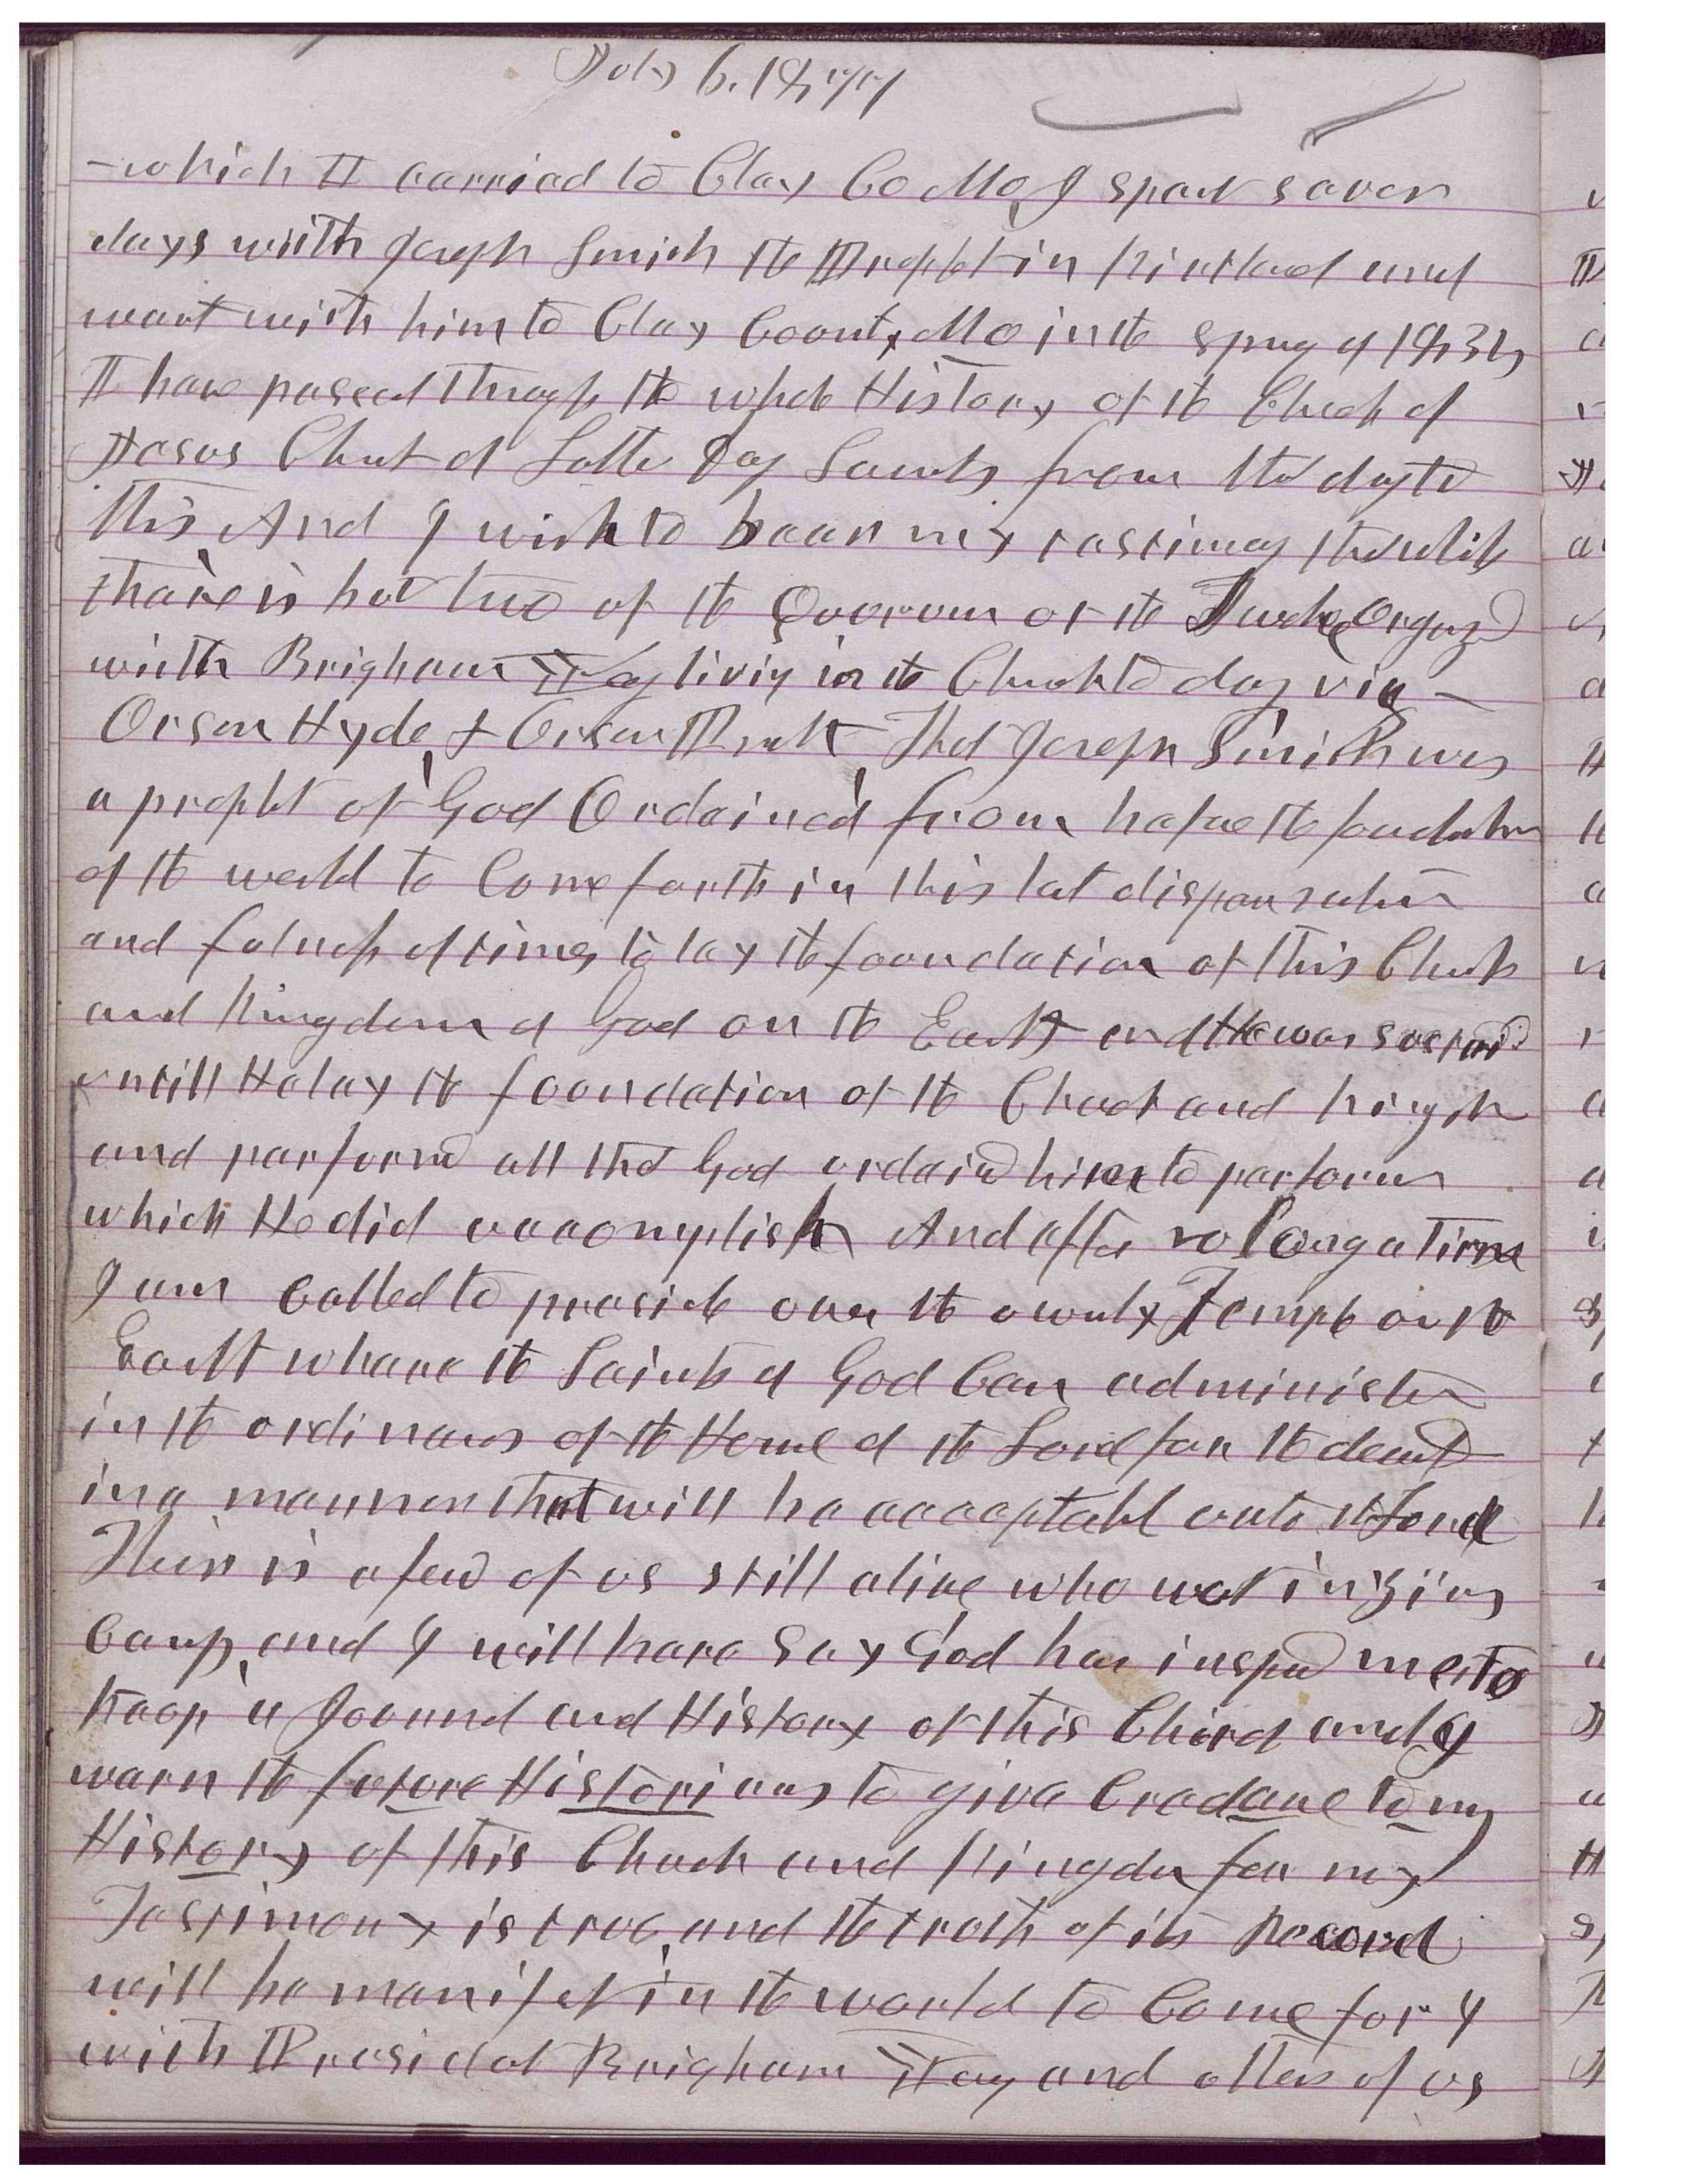 July 6. 1877
which I carried to Clay Co Mo, I spent seven
days with Joseph Smith the Prophet in Kirtland and
went with him to Clay County Mo in the spring of 1834
I have passed through the whole History of the Church of
Jesus Christ of Latter Day Saints from that day to
this And I wish to bear my testimony that while
thare is but two of the Quorum of the Twelve Organized
with Brigham Young living in the Church to day viz -
Orson Hyde, & Orson Pratt That Joseph Smith was
a prophet of God Ordained from before the foundation
of the world to Come forth in this last dispensation
and fulness of times to lay the foundation of this Church
and Kingdom of God on the Earth and He was sustaind
untill He lay the foundation of the Church and kingdom
and performd all that God ordaind him to perform
which He did accomplish And after so long a time
I am Called to preside over the ownly Temple on the
Earth where the Saints of God Can administer
in the ordinances of the House of the Lord for the dead
in a manner that will be acceptabl unto the Lord
Their is a few of us still alive who was in Zions
Camp, and I will here say God has inspird me to
keep a Journal and History of this Church and I
warn the future Historians to give Credance to my
History of this Church and Kingdom for my
Testimony is true, and the truth of its Record
will be manifest in the world to Come for I
with President Brigham Young and others of us